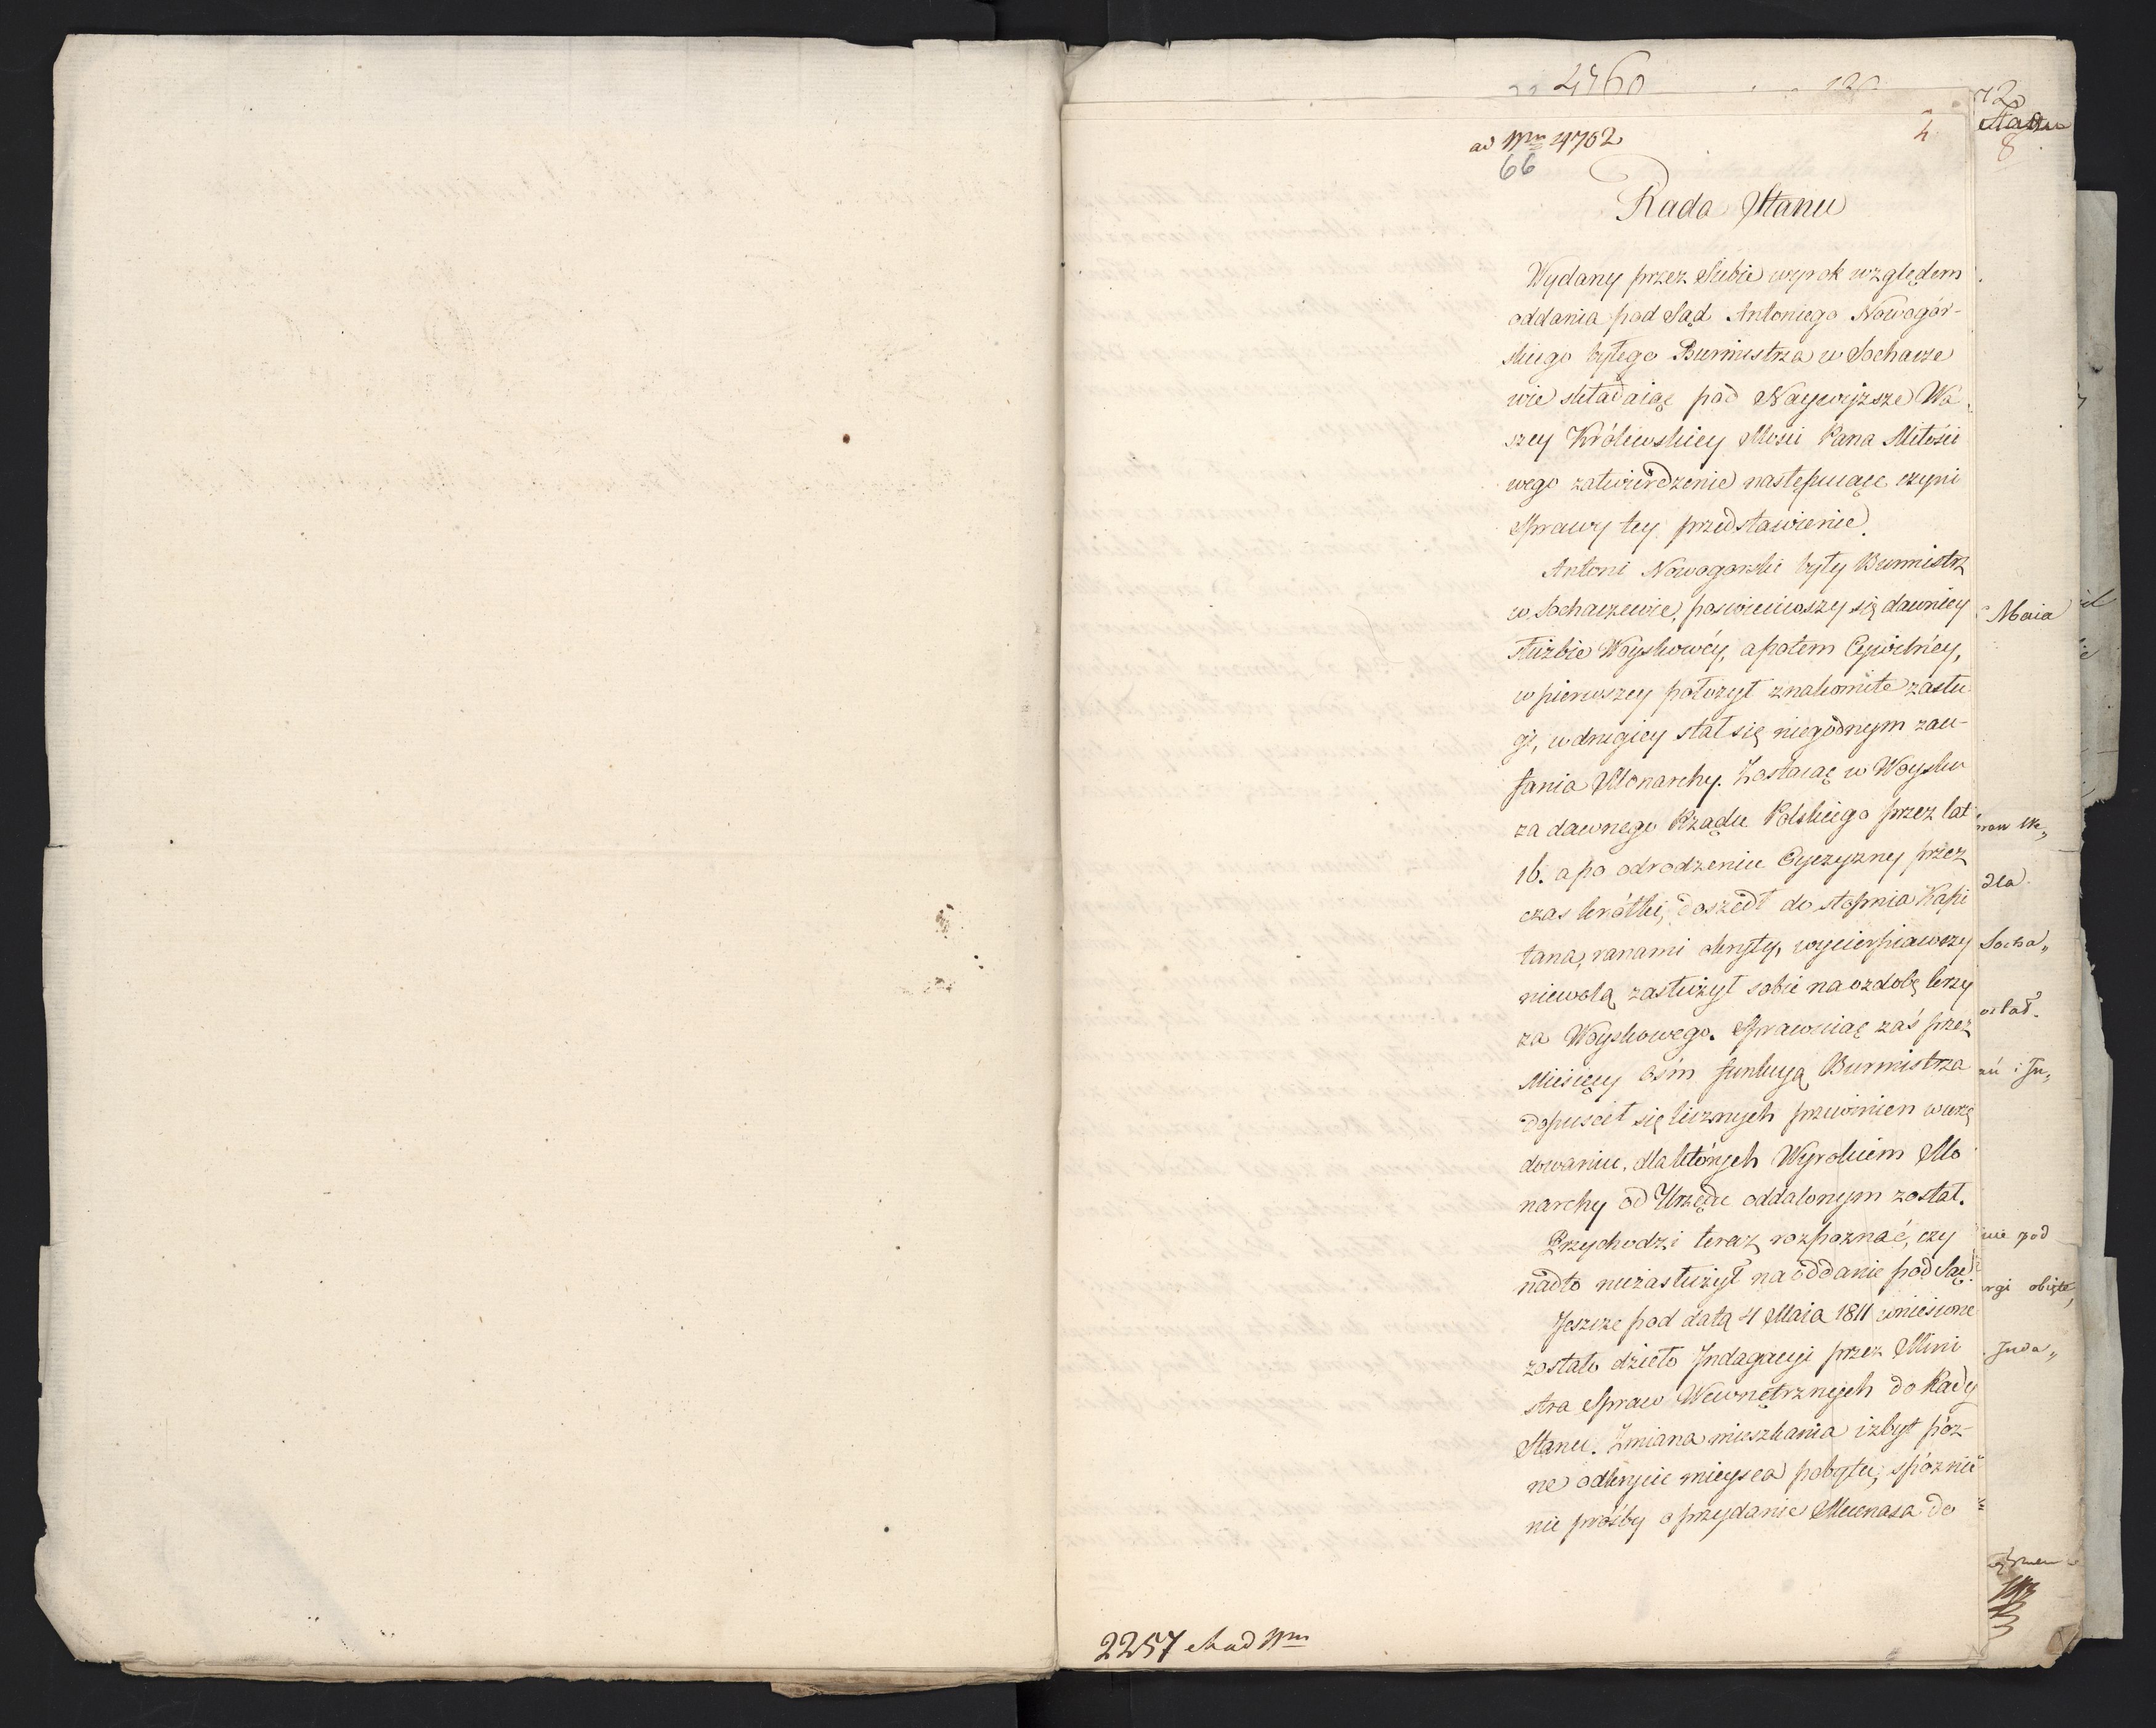 4760
72
ad Nrm 4762
4
Stanu
8
66
Rada Stanu
Wydany przez Siebie wyrok względem
oddania pod Sąd Antoniego Nowogór-
skiego byłego Burmistrza w Sochacze
wie składaiąc pod Naywyższe Wa
szey Królewskiey Mości Pana Miłości
wego zatwierdzenie następuiące czyni
Sprawy tey przedstawienie.
Antoni Nowogorski były Burmistrz
w Sochaczewie, poswięciwszy się dawniey
służbie Woyskowéy, a potem Cywilnéy,
w pierwszey położył znakomite zasłu
gi, w drugiey stał się niegodnym zau-
fania Monarchy. Zostaiąc w Woysku
za dawnego Rządu Polskiego przez lat
16. a po odrodzeniu Oyczyzny przez
czas krótki, doszedł do stopnia Kapi
tana, ranami okryty, wycierpiawszy
niewolą zasłużył sobie na ozdobę krzy
za Woyskowego. Sprawuiąc zaś przez
Miesięcy ośm funkcyą Burmistrza
dopuścił się licznych przewinien w urzę
dowaniu, dla których Wyrokiem Mo
narchy od Urzędu oddalonym został.
Przychodzi teraz rozpoznać, czy
nadto niezasłużył na oddanie pod Sąd.
Jeszcze pod datą 4 Maia 1811 wniesione
zostało dzieło Indagacyi przez Mini
stra Spraw Wewnętrznych do Rady
Stanu. Zmiana mieszkania i zbyt póz-
ne odkrycie mieysca pobytu, spóznie
nie prośby o przydanie Mecenasa do
Maia
dla
Socha„
ostał.
pod
obięte,
Inda„
2257 ad Nrm